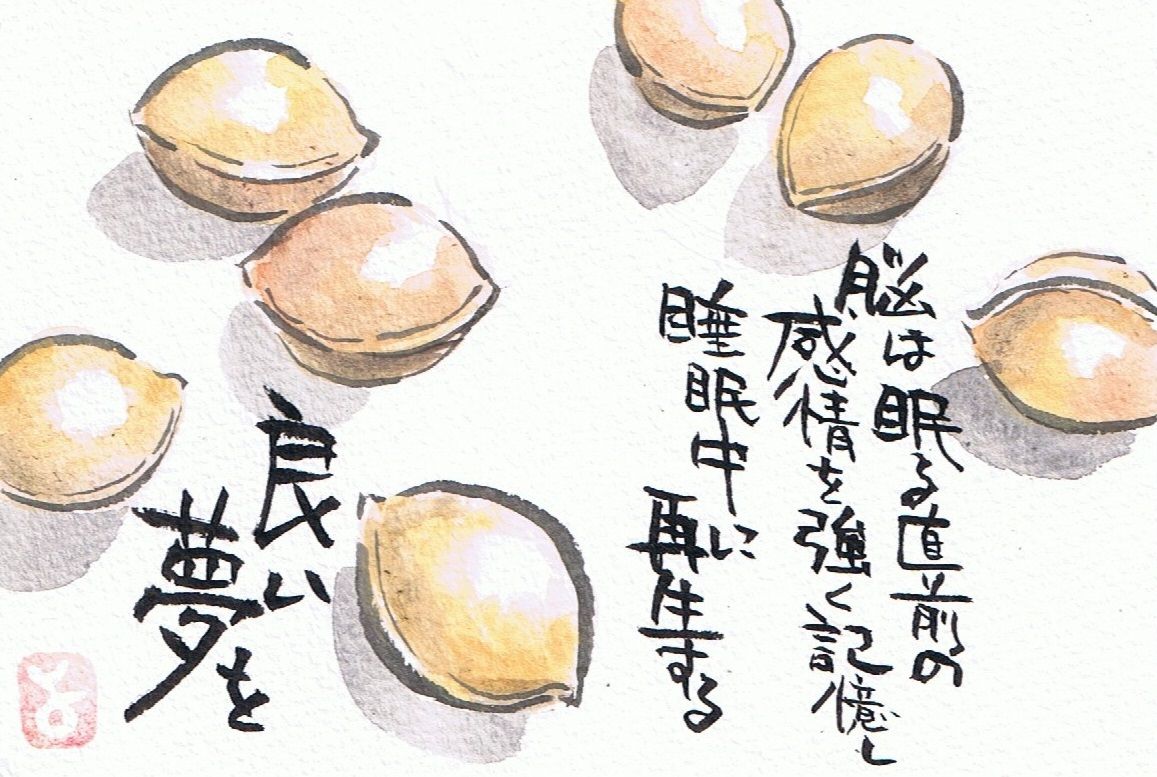 脳は眠る直前の
感情を強く記憶し
睡眠中に
再生する
良い
夢を
と